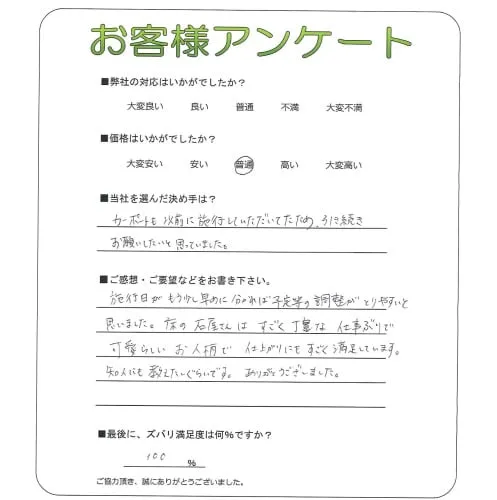 お客様アンケート
■弊社の対応はいかがでしたか?
大変良い 良い 普通 不満 大変不満
■価格はいかがでしたか?
大変安い 安い 普通 高い 大変高い
■当社を選んだ決め手は?
カーポートも以前に施行していただいてたため、引き続き
お願いしたいと思っていました。
■ご感想・ご要望などをお書き下さい。
施行日がもう少し早めに分かれば予定等の調整がとりやすいと
思いました。床の石屋さんはすごく丁寧な仕事ぶりで
可愛らしいお人柄で仕上がりにもすごく満足しています。
知人にも教えたいぐらいです。ありがとうございました。
■最後に、ズバリ満足度は何%ですか?
100 %
ご協力頂き、誠にありがとうございました。